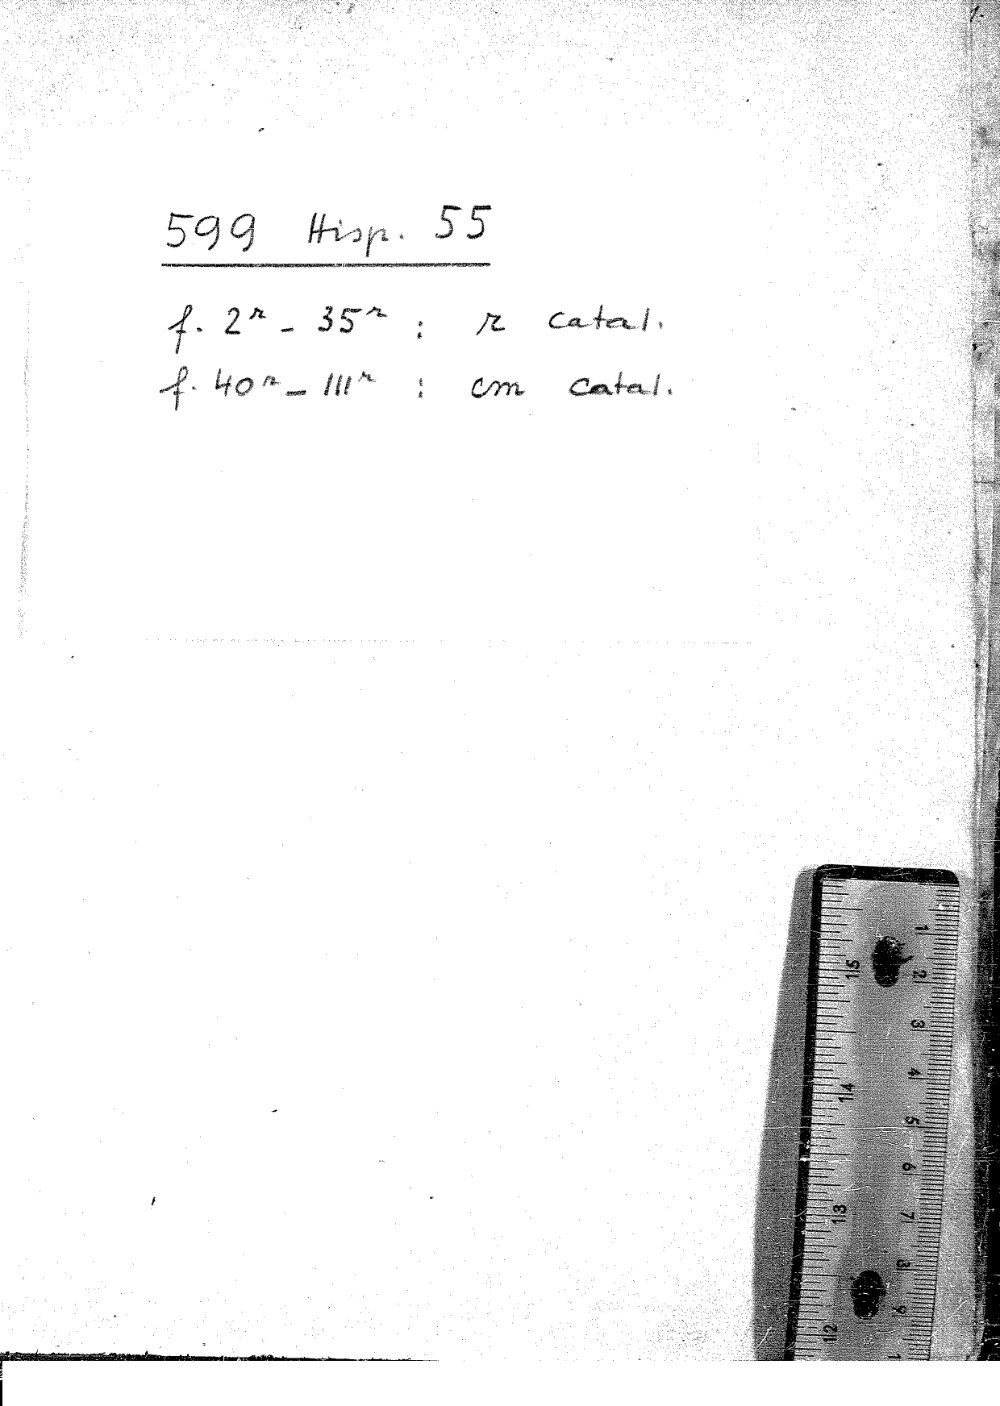 1.
599 Hisp. 55
f. 2ʳ - 35ʳ : r catal.
f. 40ʳ - 111ʳ : cm catal.
1
15
2
3
4
14
5
6
7
13
8
9
12
1